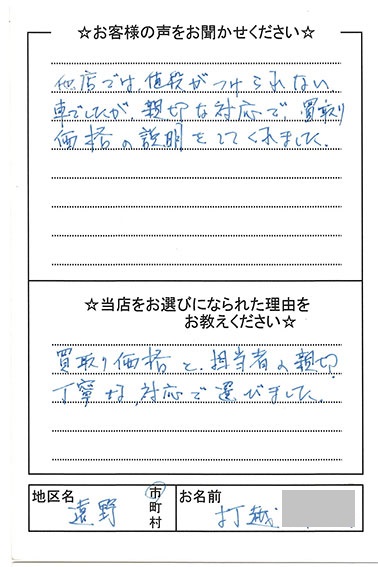 ☆お客様の声をお聞かせください☆
他店では、値段がつけられない
車でしたが、親切な対応で、買取り
価格の説明をしてくれました。
☆当店をお選びになられた理由を
お教えください☆
買取り価格と、担当者の親切
丁寧な、対応で選びました。
地区名 遠野 市町村 お名前 打越